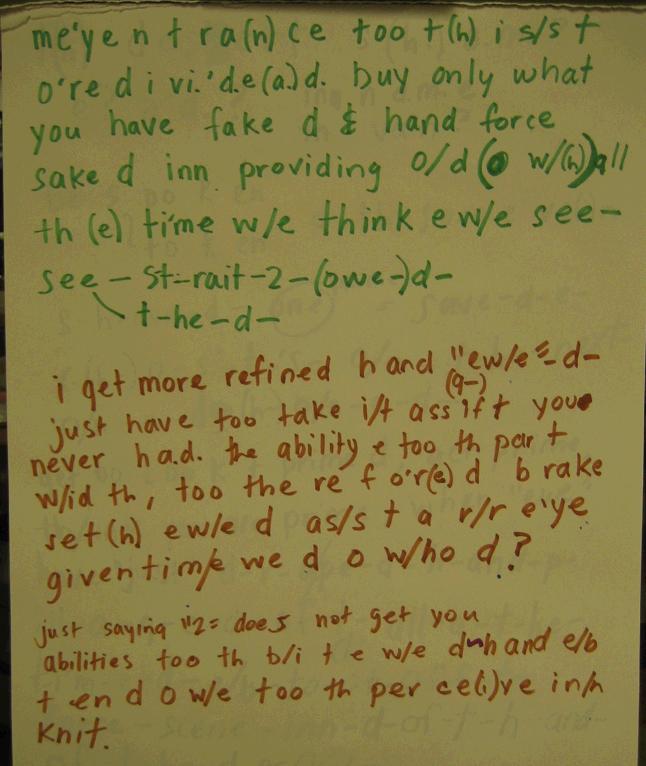 me'yen t ra(n) ce too t(h) i s/s t
o're d i vi.'d.e(a.)d. buy only what
you have fake d & hand force
sake d inn providing o/d (o w/(h))all
th (e) time w/e think e w/e see-
see - St-rait-2-(owe-)d-
t-he-d-
i get more refined h and "ew/e"-d-
(q-)
just have too take i/t ass if t you
never had. the ability e too th par t
w/id th, too the re f o'r(e) d b rake
set(h) ew/e d as/s t a r/r e'ye
given tim/e we d o w/ho d.?
just saying "2= does not get you
abilities too th b/i t e w/e d-h and e/b
t en d o w/e too th per ce(i)ve in/n
Knit.